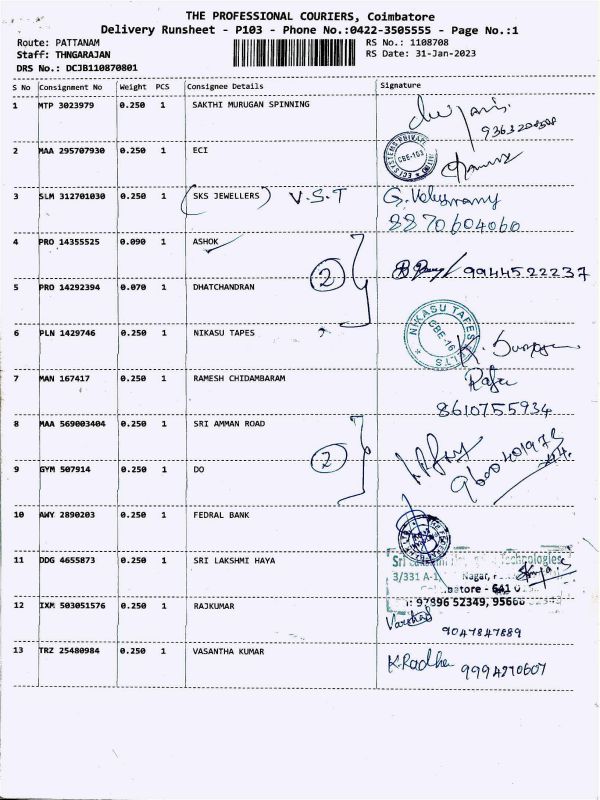 THE PROFESSIONAL COURIERS, Coimbatore
Delivery Runsheet - P103 - Phone No.:0422-3505555 - Page No.:1
Route: PATTANAM RS No.: 1108708
Staff: THNGARAJAN RS Date: 31-Jan-2023
DRS No.: DCJB110870801
S No Consignment No Weight PCS Consignee Details Signature
1 MTP 3023979 0.250 1 SAKTHI MURUGAN SPINNING
2 MAA 295707930 0.250 1 ECI
CBE-103
3 SLM 312701030 0.250 1 (SKS JEWELLERS) V.S.T
8870604060
4 PRO 14355525 0.090 1 ASHOK
2 9944522237
5 PRO 14292394 0.070 1 DHATCHANDRAN
6 PLN 1429746 0.250 1 NIKASU TAPES
NIKASU TAPES
CBE-16
7 MAN 167417 0.250 1 RAMESH CHIDAMBARAM
Raja
8610755934
8 MAA 569003404 0.250 1 SRI AMMAN ROAD
2
9 GYM 507914 0.250 1 DO
10 AWY 2890203 0.250 1 FEDRAL BANK
11 DDG 4655873 0.250 1 SRI LAKSHMI HAYA
Sri Technologies
3/331 A-1, Nagar,
97896 52349, 95666
12 IXM 503051576 0.250 1 RAJKUMAR
9047847889
13 TRZ 25480984 0.250 1 VASANTHA KUMAR
K.Radha 9994270607